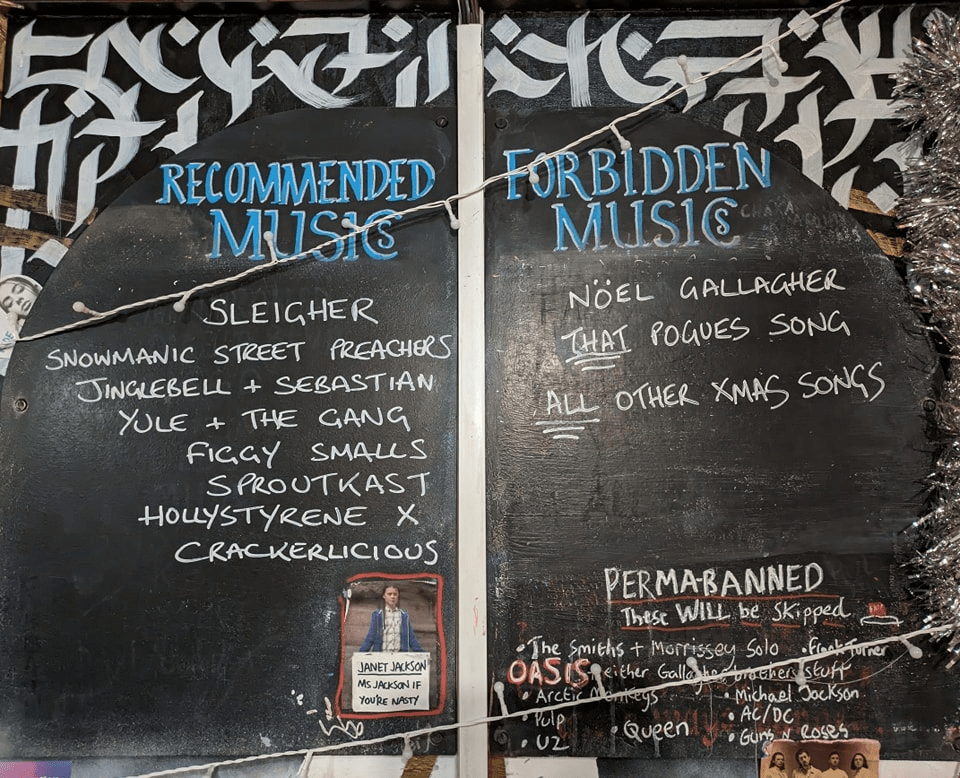 RECOMMENDED
MUSICS
SLEIGHER
SNOWMANIC STREET PREACHERS
JINGLEBELL + SEBASTIAN
YULE + THE GANG
FIGGY SMALLS
SPROUTKAST
HOLLYSTYRENE X
CRACKERLICIOUS
JANET JACKSON
MS. JACKSON IF
YOU'RE NASTY
FORBIDDEN
MUSICS
CHAKA
NÖEL GALLAGHER
THAT POGUES SONG
ALL OTHER XMAS SONGS
PERMA-BANNED
These WILL be Skipped
• The Smiths + Morrissey Solo • Frank Turner
OASIS either Gallagher brothers stuff
• Arctic Monkeys • Michael Jackson
• Pulp • Queen • AC/DC
• U2 • Guns N Roses